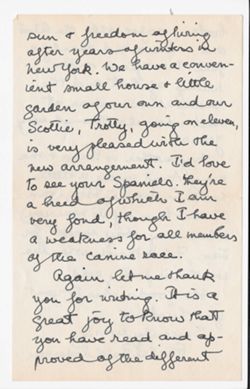 sun & freedom of living
after years of winters in
New York. We have a conven-
ient small house & little
garden of our own and our
Scottie, Trotty, going on eleven,
is very pleased with the
new arrangement. I'd love
to see your Spaniels. They're
a breed of which I am
very fond, though I have
a weakness for all members
of the canine race.
Again let me thank
you for writing. It is a
great joy to know that
you have read and ap-
proved of the different